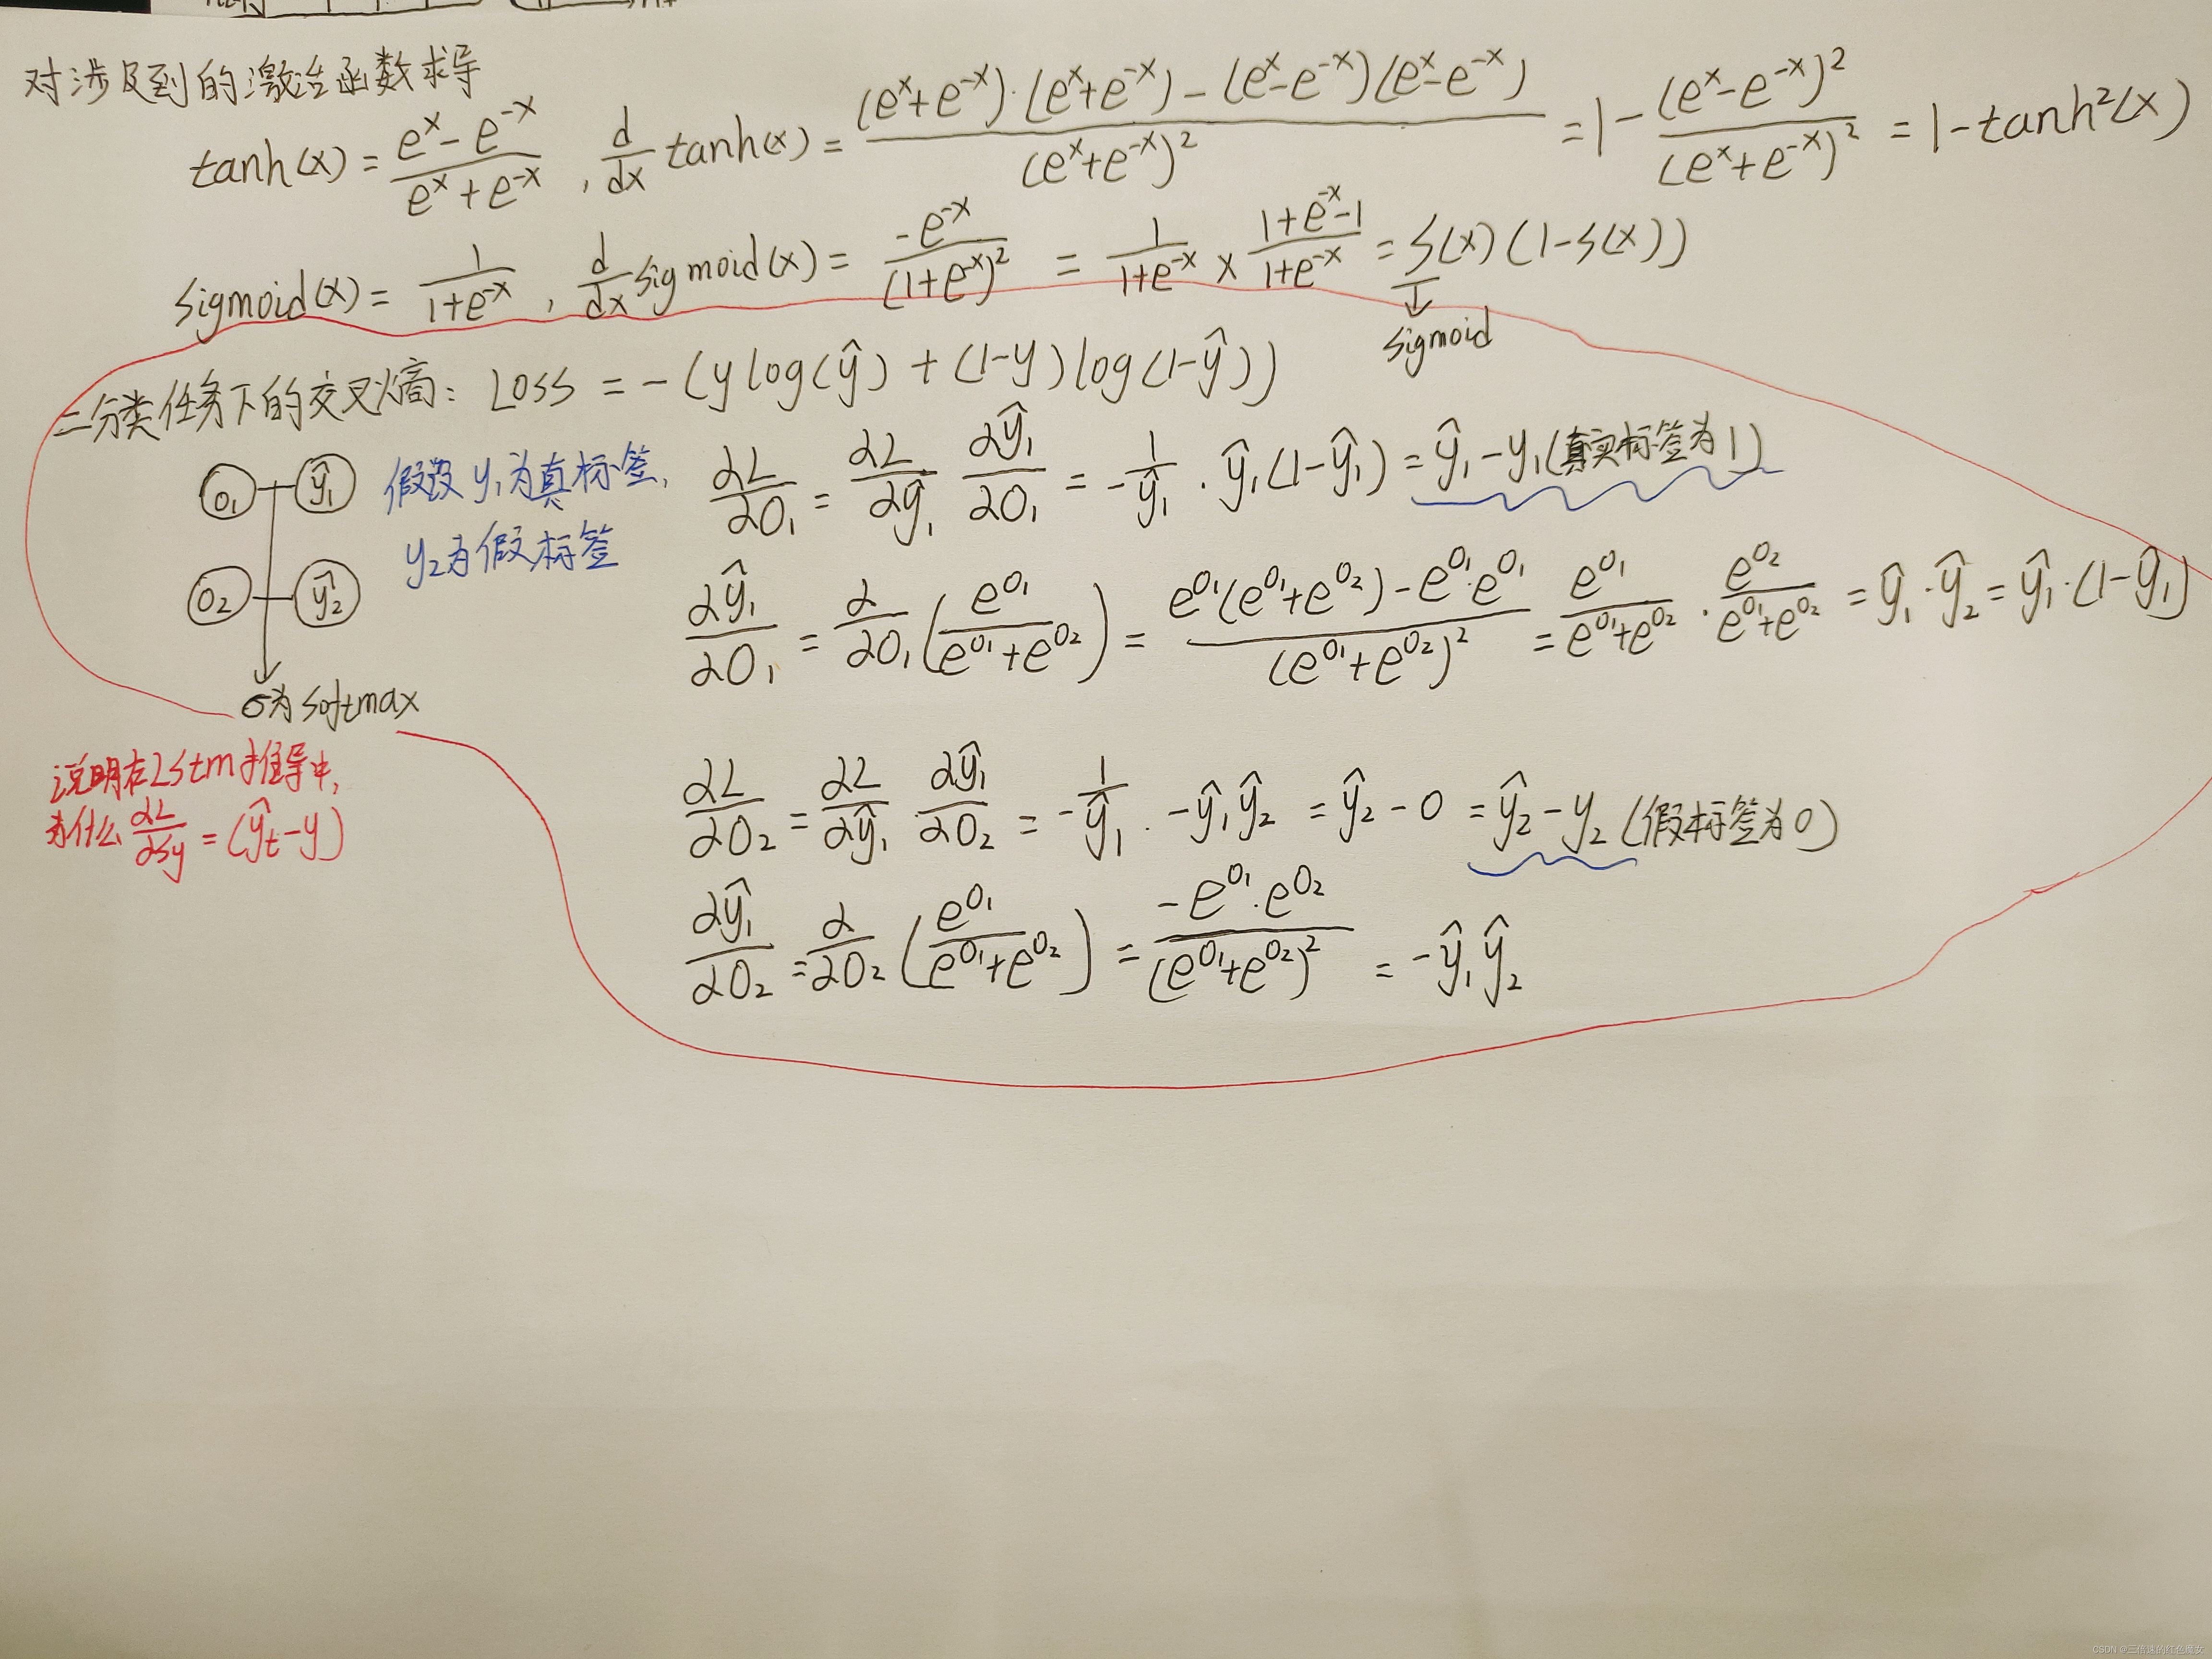 对涉及到的激活函数求导
tanh(x) = \frac{e^x - e^{-x}}{e^x + e^{-x}} , \frac{d}{dx} tanh(x) = \frac{(e^x+e^{-x})·(e^x+e^{-x}) - (e^x-e^{-x})(e^x-e^{-x})}{(e^x+e^{-x})^2} = 1 - \frac{(e^x-e^{-x})^2}{(e^x+e^{-x})^2} = 1-tanh^2(x)
Sigmoid(x) = \frac{1}{1+e^{-x}} , \frac{d}{dx} sigmoid(x) = \frac{-e^{-x}}{(1+e^{-x})^2} = \frac{1}{1+e^{-x}} × \frac{1+e^{-x}-1}{1+e^{-x}} = S(x)(1-S(x))
↓
sigmoid
二分类任务下的交叉熵: Loss = -(y log(ŷ) + (1-y) log(1-ŷ))
O₁ ŷ₁
假设 y₁为真标签,
y₂为假标签
\frac{∂L}{∂O₁} = \frac{∂L}{∂ŷ₁} \frac{∂ŷ₁}{∂O₁} = -\frac{1}{ŷ₁} · ŷ₁(1-ŷ₁) = ŷ₁ - y₁ (真实标签为1)
O₂ ŷ₂
\frac{∂ŷ₁}{∂O₁} = \frac{∂}{∂O₁} (\frac{e^{O₁}}{e^{O₁}+e^{O₂}}) = \frac{e^{O₁}(e^{O₁}+e^{O₂}) - e^{O₁}·e^{O₁}}{(e^{O₁}+e^{O₂})^2} = \frac{e^{O₁}}{e^{O₁}+e^{O₂}} · \frac{e^{O₂}}{e^{O₁}+e^{O₂}} = ŷ₁·ŷ₂ = ŷ₁·(1-ŷ₁)
σ为softmax
说明在Lstm推导中,
为什么 \frac{∂L}{∂Sy} = (ŷt - y)
\frac{∂L}{∂O₂} = \frac{∂L}{∂ŷ₁} \frac{∂ŷ₁}{∂O₂} = -\frac{1}{ŷ₁} · -ŷ₁ŷ₂ = ŷ₂ - 0 = ŷ₂ - y₂ (假标签为0)
\frac{∂ŷ₁}{∂O₂} = \frac{∂}{∂O₂} (\frac{e^{O₁}}{e^{O₁}+e^{O₂}}) = \frac{-e^{O₁}·e^{O₂}}{(e^{O₁}+e^{O₂})^2} = -ŷ₁ŷ₂
CSDN @三倍速的红色魔女